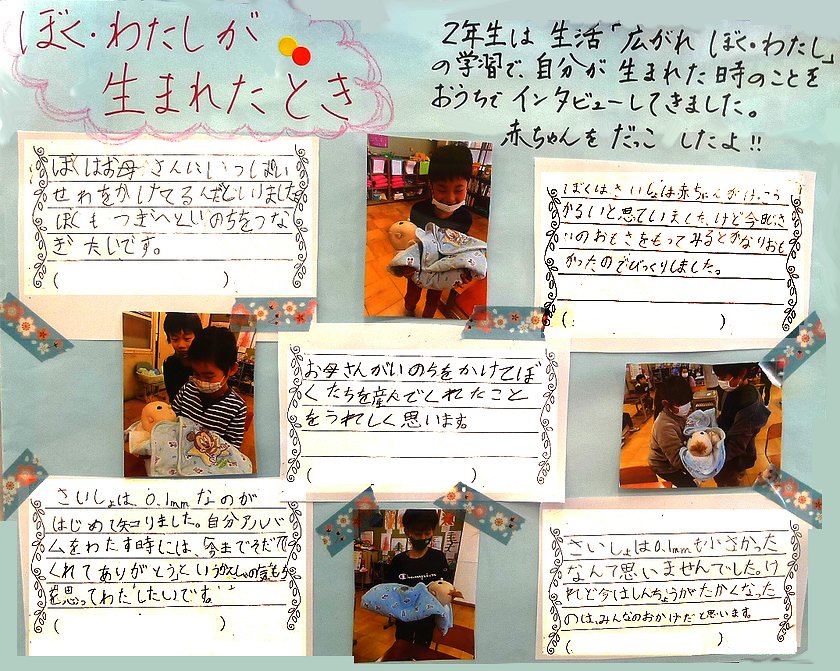 ぼく・わたしが
生まれたとき
2年生は 生活「広がれ ぼく・わたし」
の学習で、自分が 生まれた時のことを
おうちで インタビューしてきました。
赤ちゃんを だっこ したよ!!
ぼくはお母さんにいっぱい
せわをかけてるんだといりました
ぼくも つぎへといのちをつな
ぎたいです。
(                    )
ぼくは さいしょは赤ちゃんがけっこう
かるいと思ていました、けど今
いのおもさをもってみるとかなりおも
かったのでびっくりしました。
(                    )
お母さんがいのちをかけてぼ
くたちを産んでくれたこと
をうれしく思います。
(                    )
さいしょは、0.1mmなのが
はじめて知りました。自分アルバ
ムをわたす時には、「今までそだてて
くれてありがとう」という
を思ってわたしたいです。
(                    )
さいしょは0.1mmも小さかった
なんて思いませんでした。け
れど今はしんちょうがたかくなった
のは、みんなのおかげだと思います。
(                    )